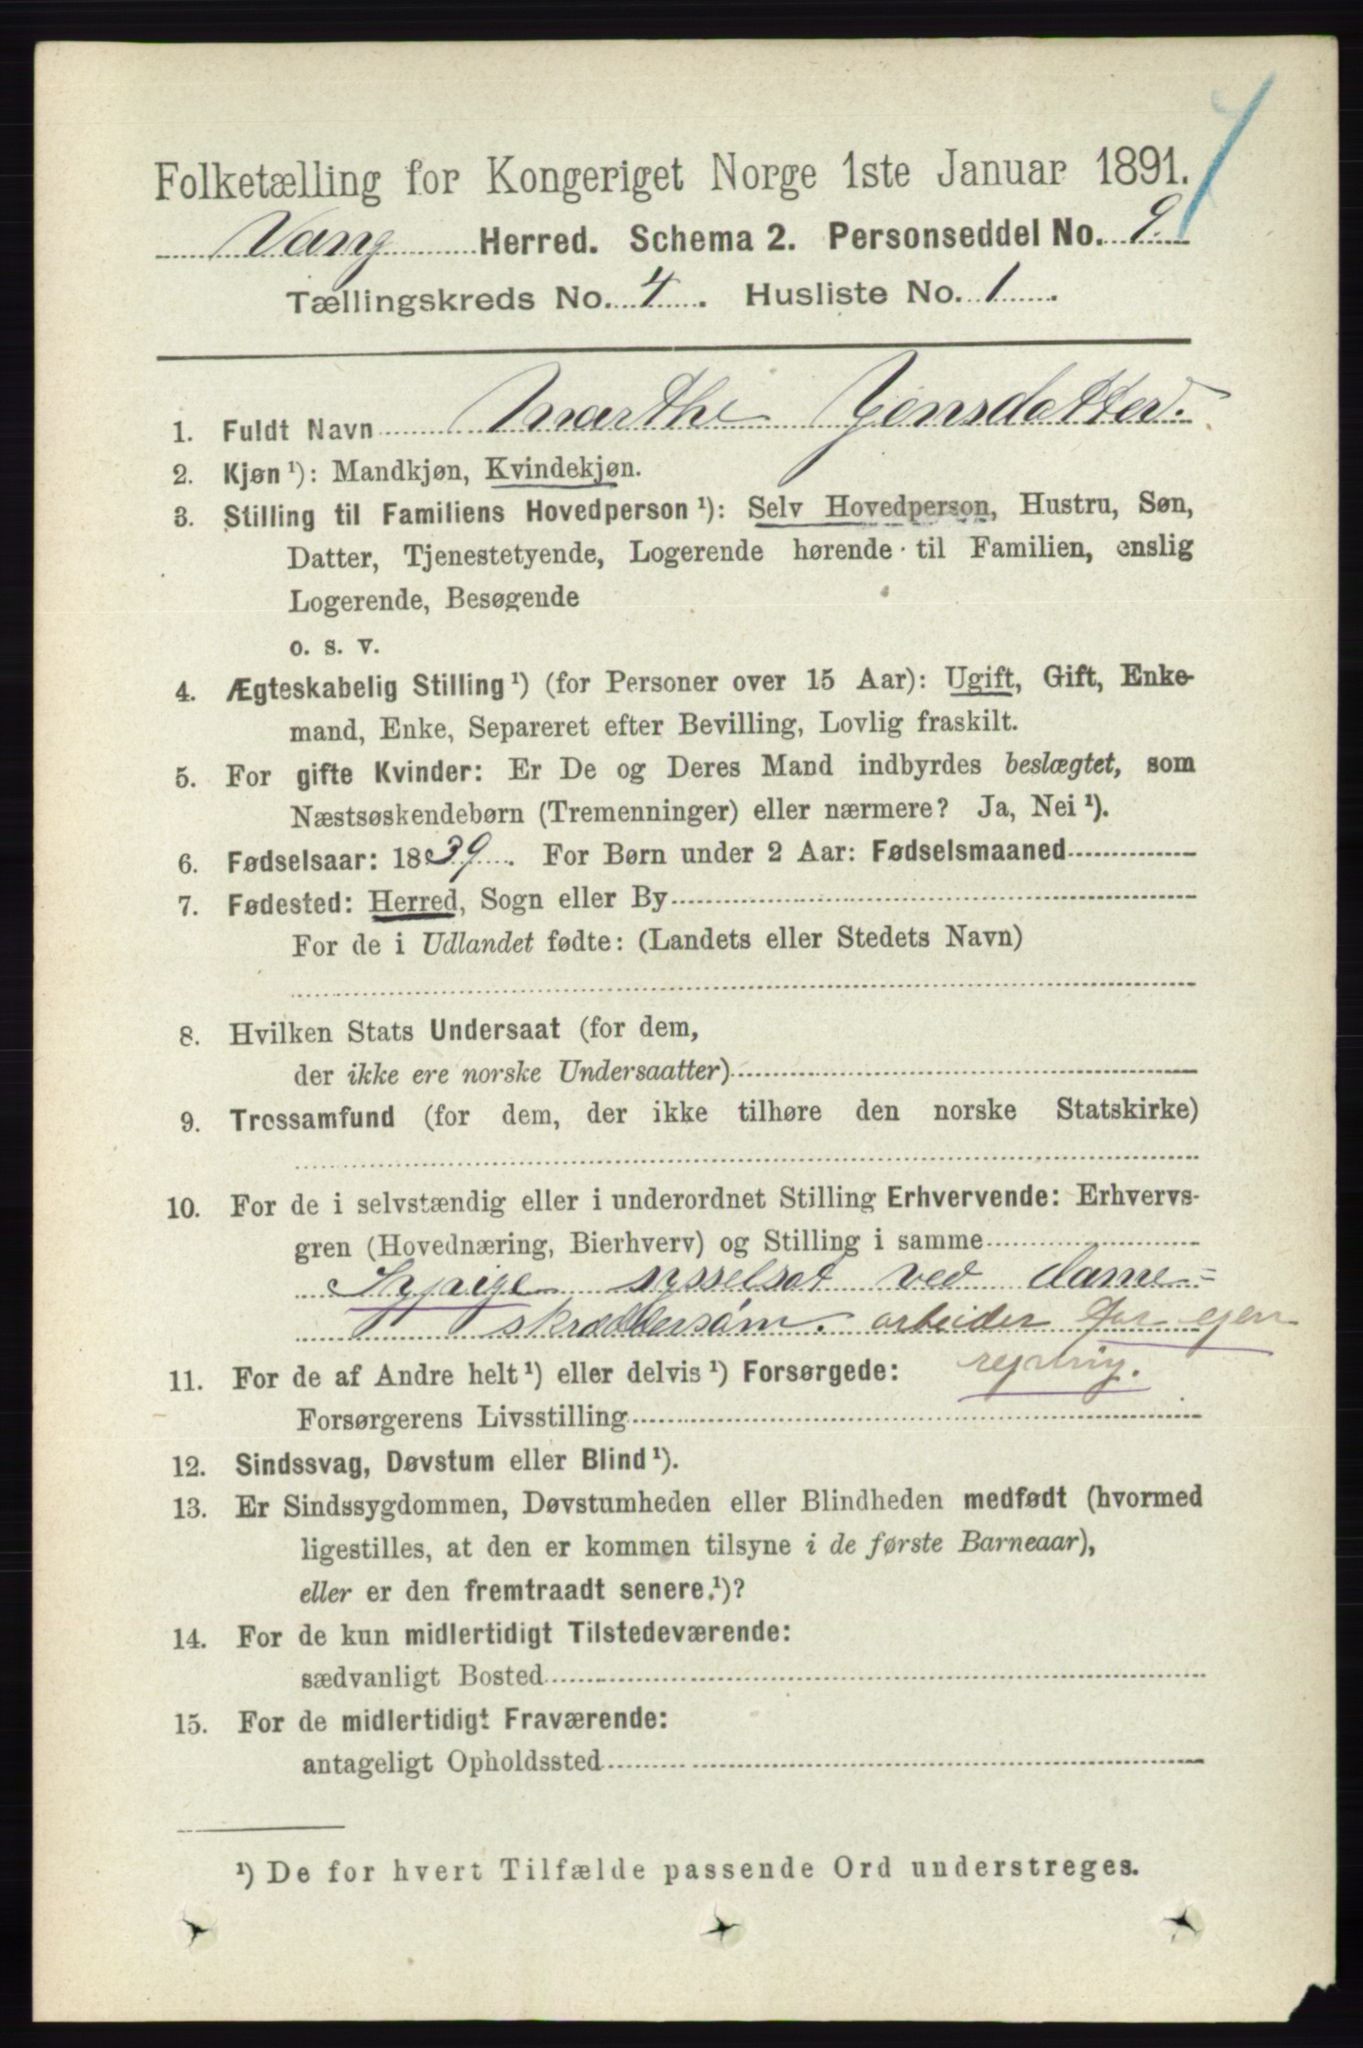 Folketælling for Kongeriget Norge 1ste Januar 1891.
Vang Herred. Schema 2. Personseddel No. 9.
Tællingskreds No. 4. Husliste No. 1.
1. Fuldt Navn Marthe Jensdatter.
2. Kjøn ¹): Mandkjøn, Kvindekjøn.
3. Stilling til Familiens Hovedperson ¹): Selv Hovedperson, Hustru, Søn,
Datter, Tjenestetyende, Logerende hørende til Familien, enslig
Logerende, Besøgende
o. s. v.
4. Ægteskabelig Stilling ¹) (for Personer over 15 Aar): Ugift, Gift, Enke-
mand, Enke, Separeret efter Bevilling, Lovlig fraskilt.
5. For gifte Kvinder: Er De og Deres Mand indbyrdes beslægtet, som
Næstsøskendebørn (Tremenninger) eller nærmere? Ja, Nei ¹).
6. Fødselsaar: 1839. For Børn under 2 Aar: Fødselsmaaned
7. Fødested: Herred, Sogn eller By
For de i Udlandet fødte: (Landets eller Stedets Navn)
8. Hvilken Stats Undersaat (for dem,
der ikke ere norske Undersaatter)
9. Trossamfund (for dem, der ikke tilhøre den norske Statskirke)
10. For de i selvstændig eller i underordnet Stilling Erhvervende: Erhvervs-
gren (Hovednæring, Bierhverv) og Stilling i samme
Sypige sysselsat ved dame=
skræddersøm. arbeider for egen
regning.
11. For de af Andre helt ¹) eller delvis ¹) Forsørgede:
Forsørgerens Livsstilling
12. Sindssvag, Døvstum eller Blind ¹).
13. Er Sindssygdommen, Døvstumheden eller Blindheden medfødt (hvormed
ligestilles, at den er kommen tilsyne i de første Barneaar),
eller er den fremtraadt senere.¹)?
14. For de kun midlertidigt Tilstedeværende:
sædvanligt Bosted
15. For de midlertidigt Fraværende:
antageligt Opholdssted
¹) De for hvert Tilfælde passende Ord understreges.